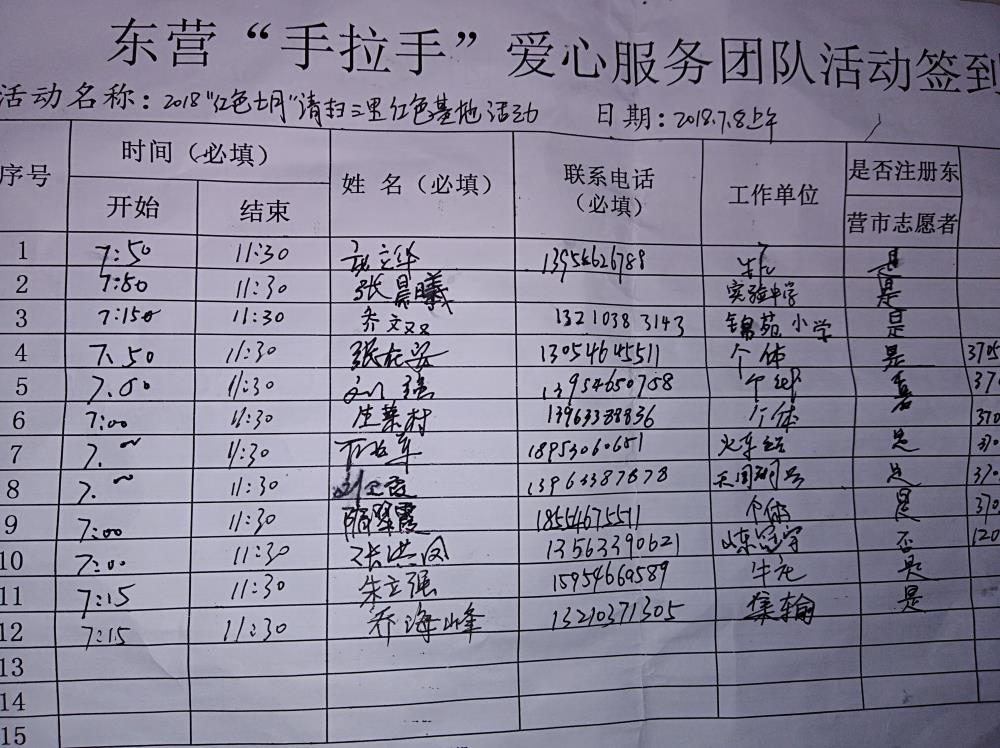 东营“手拉手”爱心服务团队活动签到
活动名称：2018“红色七月”清扫三里红色基地活动 日期：2018.7.8上午
序号 时间（必填） 姓 名（必填） 联系电话（必填） 工作单位 是否注册东营市志愿者
开始 结束
1 7:50 11:30 13954626789 是
2 7:50 11:30 张晨曦 实验中学 是
3 7:150 11:30 乔文双 13210383143 锦苑小学 是
4 7.50 11:30 张在安 13054645511 个体 是 3705
5 7.00 11:30 刘强 13954650758 个体 370
6 7:00 11:30 庄菜村 13963388836 个体 370
7 7. ~ 11:30 18953060651 是 370
8 7. ~ 11:30 13963387878 是 370
9 7:00 11:30 隋翠霞 18554675511 个体 是 370
10 7:00 11:30 张洪凤 13563390621 否 120
11 7:15 11:30 朱立强 15954669589 牛庄 是
12 7:15 11:30 乔海峰 13210371305 集输 是
13
14
15